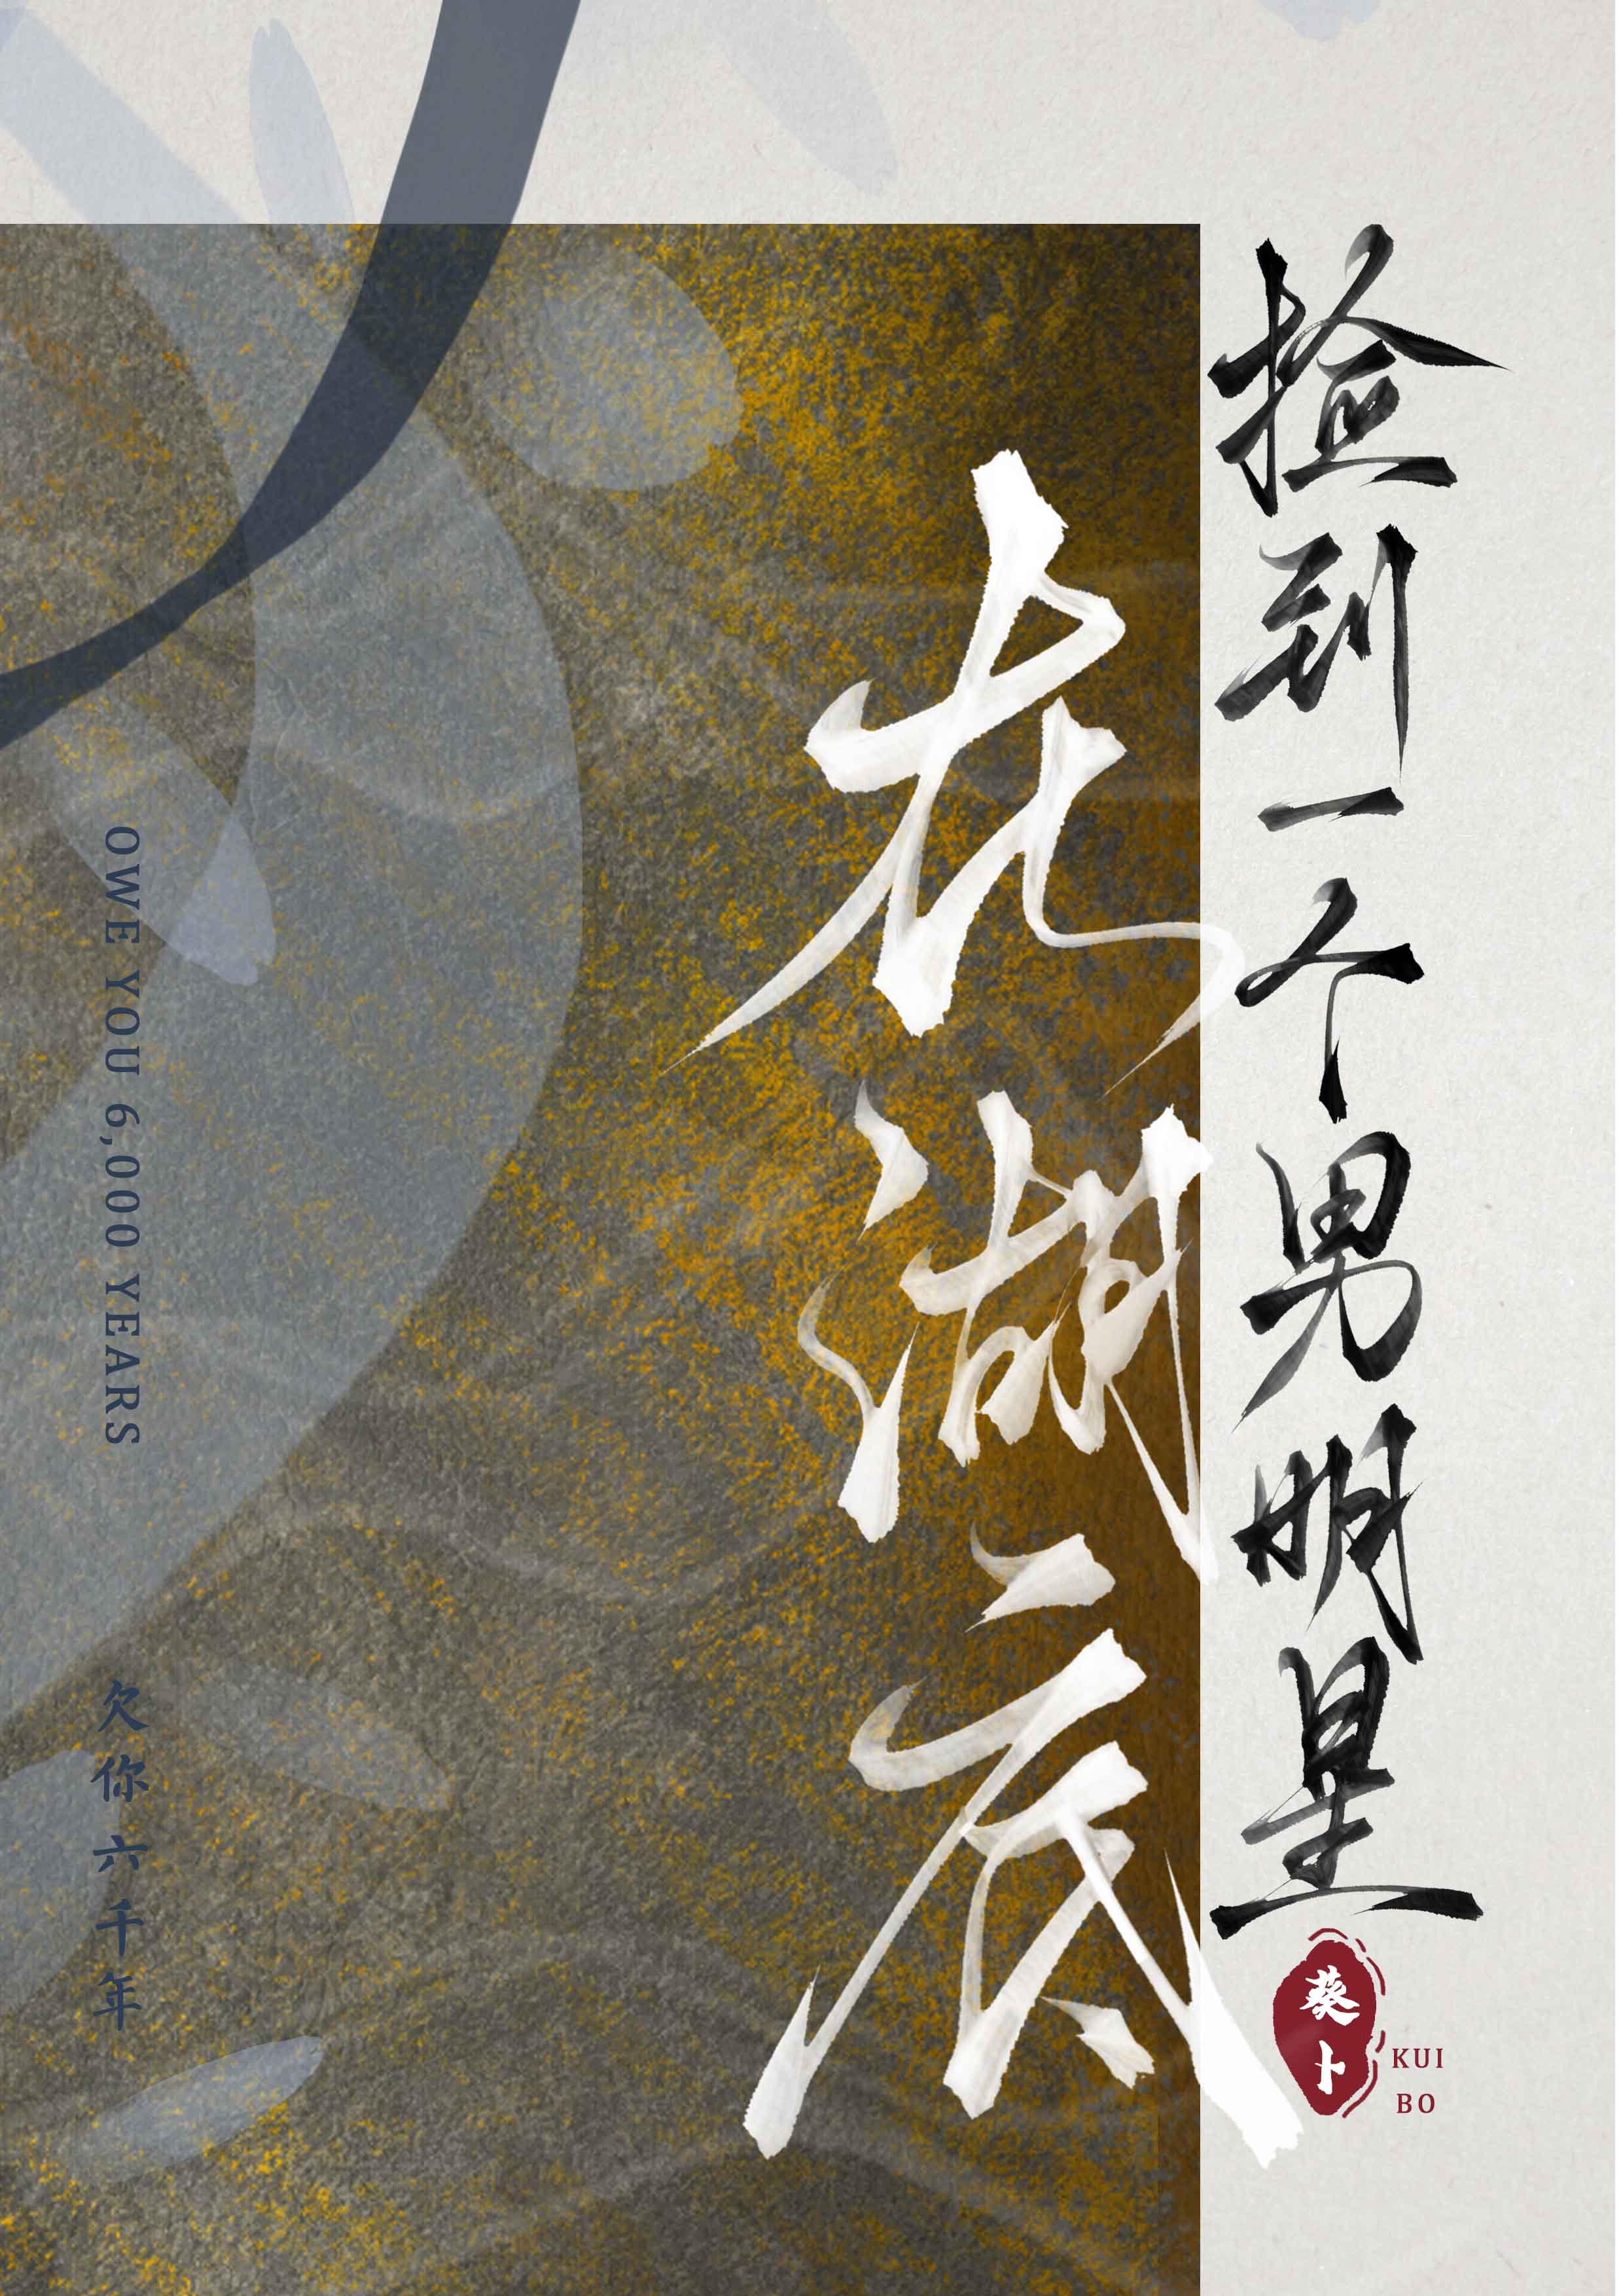 捡到一个男明星
在湖底
葵卜
KUI
BO
OWE YOU 6,000 YEARS
欠你六千年